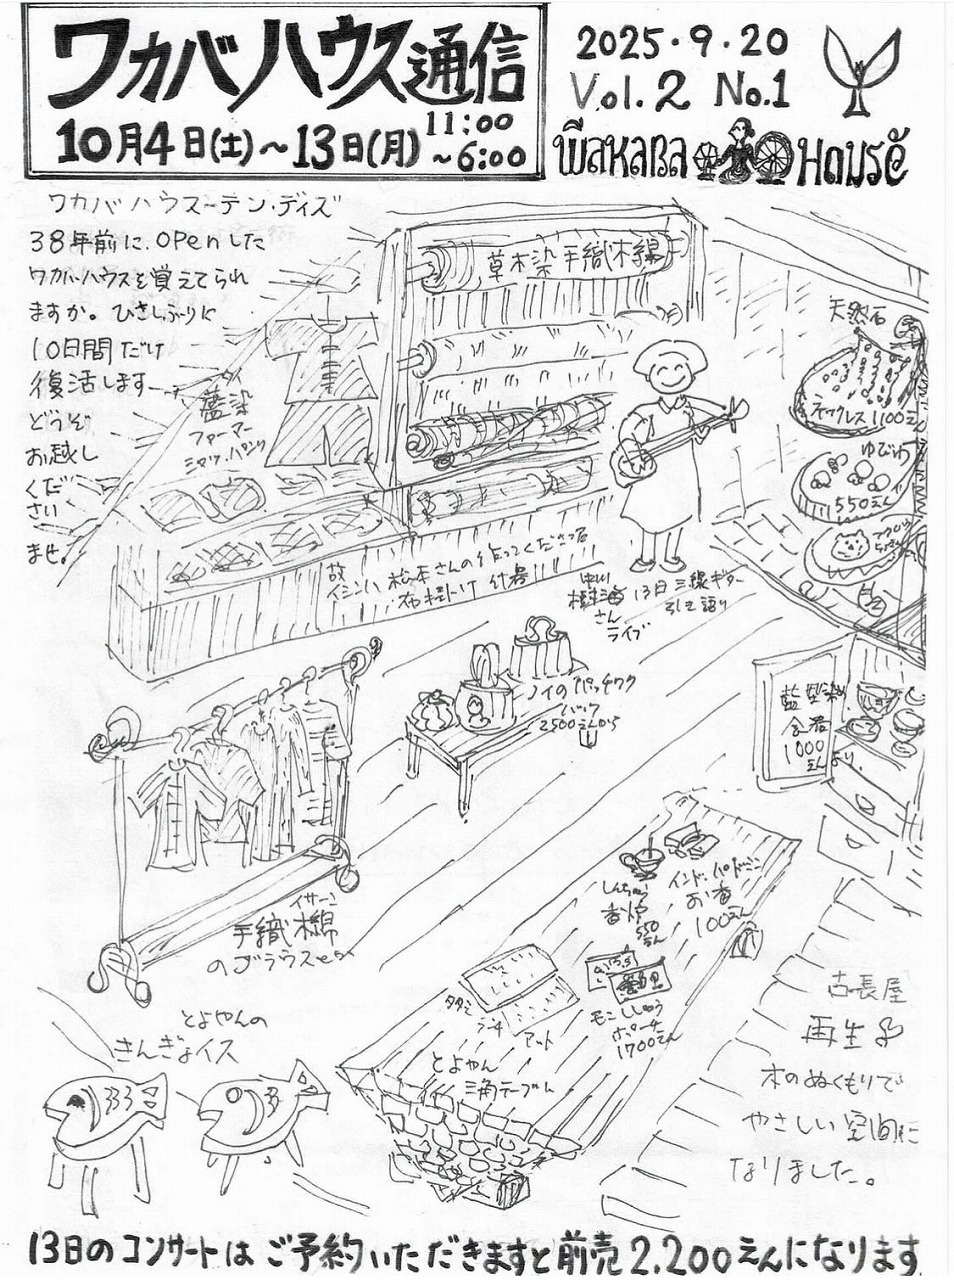 ワカバハウス通信
10月4日(土)～13日(月) 11:00～6:00
2025・9・20
Vol.2 No.1
WAKABA HOUSE
ワカバハウステン・デイズ
38年前に、OPenした
ワカバハウスを覚えてられ
ますか。ひさしぶりに
10日間だけ
復活します
どうぞ
お越し
くだ
さい
ませ。
草木染手織木綿
藍染
ファーマー
シャツ、パンツ
天然石
ネックレス1100えん
ゆびわ
550えん
故
松本さんの作ってくださった
布掛け什器
樹海
さん
ライブ
13日三線ギター
引き語り
ノイのパッチワク
バック
2500えんから
藍型染め
1000
えんより
イサーン
手織木綿
のブラウスetc
しんちゅう
香炉
550
えん
インド・パドミニ
お香
100えん
モン ししゅう
ポーチ
1700えん
タタミ
アート
とよやんの
きんぎょイス
とよやん
三角テーブル
古長屋
再生し
木のぬくもりで
やさしい空間に
なりました。
13日のコンサートはご予約いただきますと前売2.200えんになります